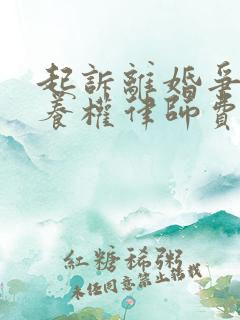 起訴離婚爭
養權律師費
紅糖稀粥
未經同意禁止轉載